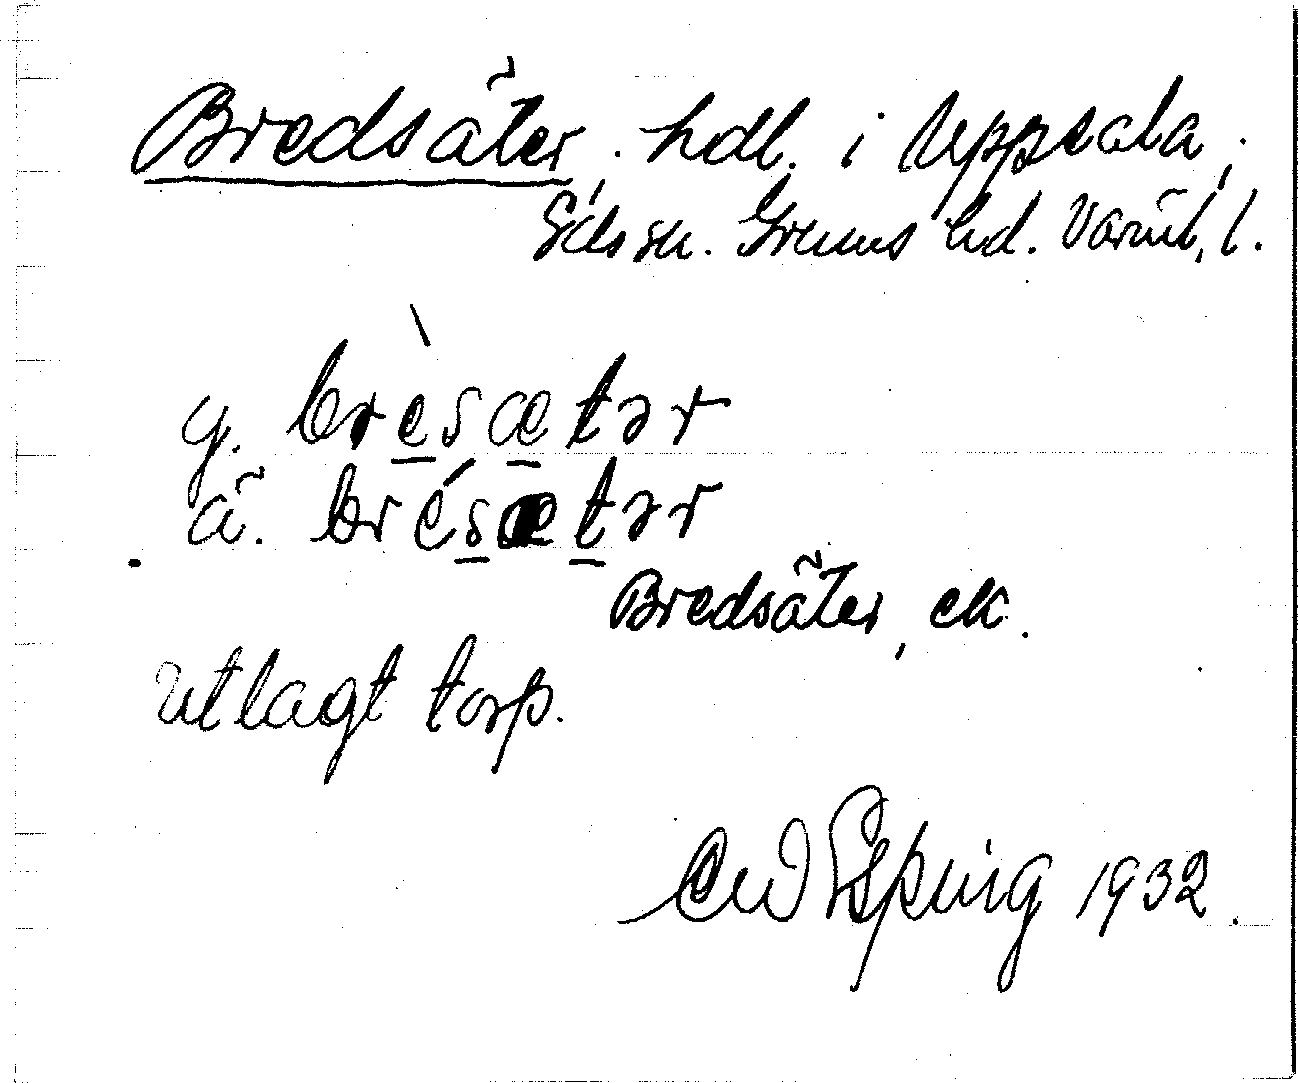 Bredsäter, hdl. i Uppsala,
Eds sn. Grums hd. Värml. l.
y. brèsætər
ä. brésætər
Bredsäter, ek.
utlagt torp.
Esping 1932.